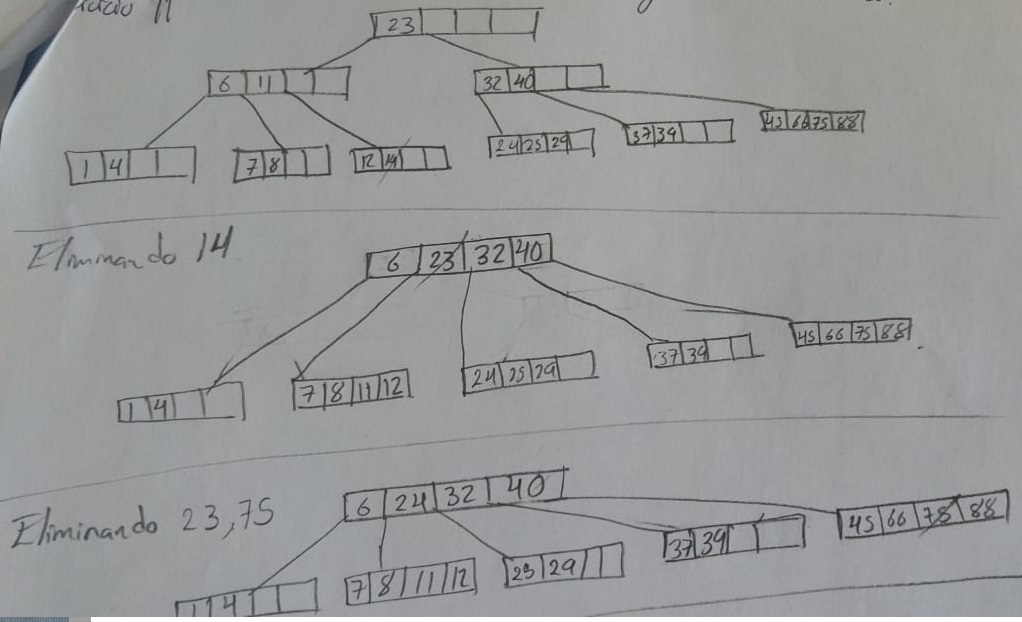 11
23
6 11
32 40
1 4
7 8
12 14
24 25 29
37 39
45 66 75 88
Eliminando 14
6 23 32 40
1 4
7 8 11 12
24 25 29
37 39
45 66 75 88
Eliminando 23,75
6 24 32 40
1 4
7 8 11 12
25 29
37 39
45 66 75 88